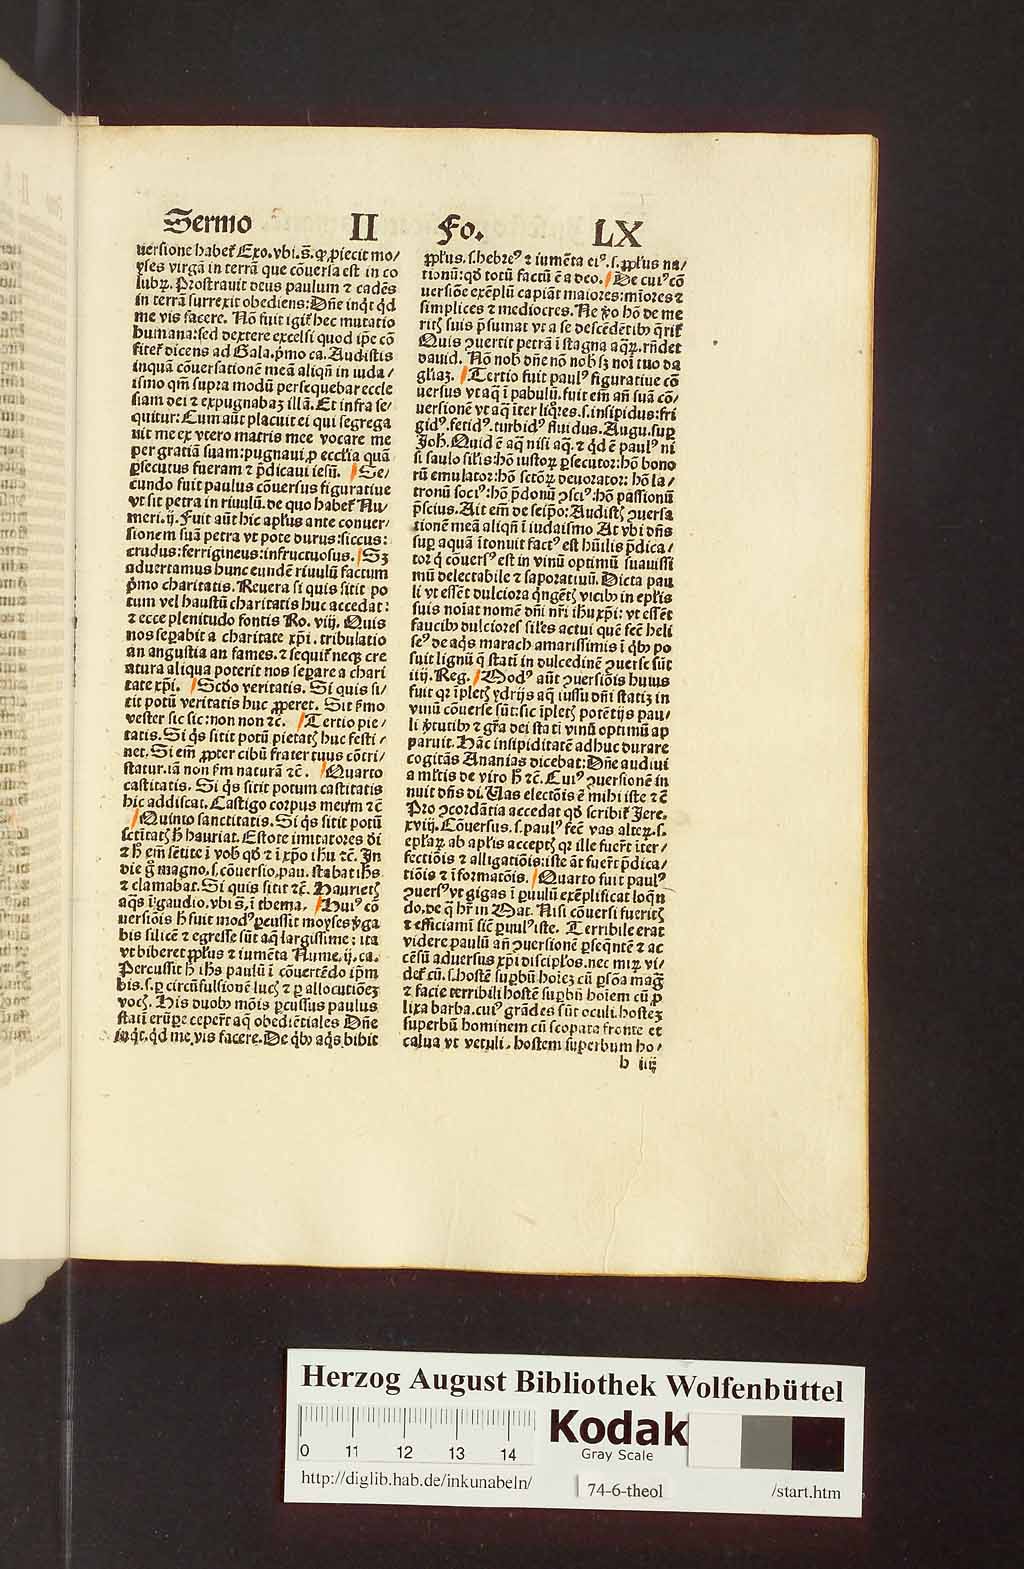 Sermo II Fo. LX
uersione habet᷑ Exo. vbi.s̄. ꝙ ꝓiecit mo/
yses virgā in terrā que cōuersa est in co
lubꝝ. Prostrauit deus paulum ⁊ cadēs
in terrā surrexit obediens: Dn̄e inqͥt qͥd
me vis facere. Nō fuit igit᷑ hec mutatio
humana: sed dextere excelsi quod ip̄e cō
fitet᷑ dicens ad Gala. pͥmo ca. Audistis
inquā cōuersationē meā aliqn̄ in iuda/
ismo qm̄ supra modū persequebar eccle
siam dei ⁊ expugnabaꝫ illā. Et infra se/
quitur: Cum aūt placuit ei qui segrega
uit me ex vtero matris mee vocare me
per gratiā suam: pugnaui ꝓ eccl'ia quā
ꝑsecutus fueram ⁊ p̄dicaui iesū. Se/
cundo fuit paulus cōuersus figuratiue
vt sit petra in riuulū. de quo habet᷑ Nu/
meri. ij. Fuit aūt hic apl'us ante conuer/
sionem suā petra vt pote durus: siccus:
crudus: ferrigineus: infructuosus. Sꝫ
aduertamus hunc eundē riuulū factum
pͥmo charitatis. Reuera si quis sitit po
tum vel haustū charitatis huc accedat:
⁊ ecce plenitudo fontis Ro. viij. Quis
nos seꝑabit a charitate xp̄i. tribulatio
an angustia an fames. ⁊ sequit᷑ neqꝫ cre
atura aliqua poterit nos seꝑare a chari
tate xp̄i. Scd̄o veritatis. Si quis si/
tit potū veritatis huc ꝓꝑeret. Sit ẜmo
vester sic sic: non non ⁊c̄. Tertio pie/
tatis. Si qͥs sitit potū pietatꝭ huc festi/
net. Si em̄ ꝓpter cibū frater tuus cōtri/
statur. iā non ẜm naturā ⁊c̄. Quarto
castitatis. Si qͥs sitit potum castitatis
hic addiscat. Castigo corpus meum ⁊c̄
Quinto sanctitatis. Si qͥs sitit potū
sctītatꝭ h̄ hauriat. Estote imitatores d̄i
⁊ h̄ em̄ sētite ī vob̄ qd̓ ⁊ ī xp̄o ihu ⁊c̄. In
die gͦ magno. s. cōuersio. pau. stabat ih̄s
⁊ clamabat. Si quis sitit ⁊c̄. Haurietꝭ
aqͣs ī gaudio. vbi s̄. ī thema. Huiꝰ cō
uersiōis h̄ fuit modꝰ ꝑcussit moyses vͥga
bis silicē ⁊ egresse sūt aq̄ largissime: ita
vt biberet ꝓpl'us ⁊ iumēta Nume. ij. ca.
Percussit h̄ ih̄s paulū ī cōuertēdo ip̄m
bis. s. ꝑ circūfulsionē lucꝭ ⁊ ꝑ allocutiōeꝫ
vocꝭ. His duobꝰ mōis ꝑcussus paulus
statī erūꝑe ceper̄t aq̄ obediētiales Dn̄e
inqͥt. qͥd me vis facere. De qͥbꝰ aqͣs bibit
ꝓpl'us. s. hebreꝰ ⁊ iumēta eiꝰ. s. ꝓpl'us na/
tionū: qd̓ totū factū ē a deo. De cuiꝰ cō
uersiōe exēplū capiāt maiores: mīores ⁊
simplices ⁊ mediocres. Ne ꝟo hō de me
ritꝭ suis p̄sumat vt a se descēdētibꝰ q̄rit᷑
Quis ꝯuertit petrā ī stagna aqꝝ. rn̄det
dauid. Nō nob̄ dn̄e nō nob̄ sꝫ noī tuo da
gl'iaꝫ. Tertio fuit paulꝰ figuratiue cō
uersus vt aq̄ ī pabulū. fuit em̄ an̄ suā cō/
uersionē vt aq̄ īter liqͦres. s. insipidus: fri
gidꝰ. fetidꝰ. turbidꝰ fluidus. Augu. suꝑ
Joh. Quid ē aq̄ nisi aq̄. ⁊ qͥd ē paulꝰ ni
si saulo sil'is: hō iustoꝝ ꝑsecutor: hō bono
rū emulator: hō sctōꝝ deuorator: hō la/
tronū sociꝰ: hō p̄donū ꝯsciꝰ: hō passionū
p̄scius. Ait em̄ de seip̄o: Audistꝭ ꝯuersa
tionē meā aliqn̄ ī iudaismo At vbi dn̄s
suꝑ aquā ītonuit factꝰ est hūilis p̄dica/
tor qͥ cōuersꝰ est in vinū optimū suauissi
mū delectabile ⁊ saporatiuū. Dicta pau
li vt essēt dulciora qͥngētꝭ vicibꝰ in ep̄lis
suis noīat nomē dn̄i nr̄i ihu xp̄i: vt essēt
faucibꝰ dulciores sil'es actui quē fec̄ heli
seꝰ de aqͣs marach amarissimis ī qͥbꝰ po
suit lignū q̄ statī in dulcedinē ꝯuerse sūt
iiij. Reg. Modꝰ aūt ꝯuersiōis huius
fuit qꝛ īpletꝭ ydrijs aq̄ iussu dn̄i statiꝫ in
vinū cōuerse sūt: sic īpletꝭ potētijs pau/
li ꝟtutibꝰ ⁊ gr̄a dei statī vinū optimū ap
paruit. Hāc insipiditatē adhuc durare
cogitās Ananias dicebat: Dn̄e audiui
a ml'tis de viro h̄ ⁊c̄. Cuiꝰ ꝯuersionē in
nuit dn̄s d̄i. Uas electōis ē mihi iste ⁊c̄
Pro ꝯcordātia accedat qd̓ scribit᷑ Jere.
xviij. Cōuersus. s. paulꝰ fec̄ vas alteꝝ. s.
ep̄laꝝ ab apl'is acceptꝭ qꝛ ille fuer̄t īter/
fectiōis ⁊ alligatiōis: iste āt fuer̄t p̄dica/
tiōis ⁊ īformatōis. Quarto fuit paulꝰ
ꝯuersꝰ vt gigas ī ꝑuulū exēplificat loqn̄
do. de q̄ hr̄ in Mat. Nisi cōuersi fueritꝭ
⁊ efficiamī sic̄ ꝑuulꝰ iste. Terribile erat
videre paulū an̄ ꝯuersionē ꝑseqn̄tē ⁊ ac
cēsū aduersus xp̄i discipl'os. nec miꝝ vi/
det᷑ cū. s. hostē suꝑbū hoīeꝫ cū ꝑsōa maḡ
⁊ facie terribili hostē suꝑbū hoīem cū ꝓ
lixa barba. cuiꝰ grādes sūt oculi. hosteꝫ
superbū hominem cū scopata fronte et
calua vt vetuli. hostem superbum ho/
h iiij
Herzog August Bibliothek Wolfenbüttel
0 11 12 13 14
Kodak
Gray Scale
http://diglib.hab.de/inkunabeln/ 74-6-theol /start.htm